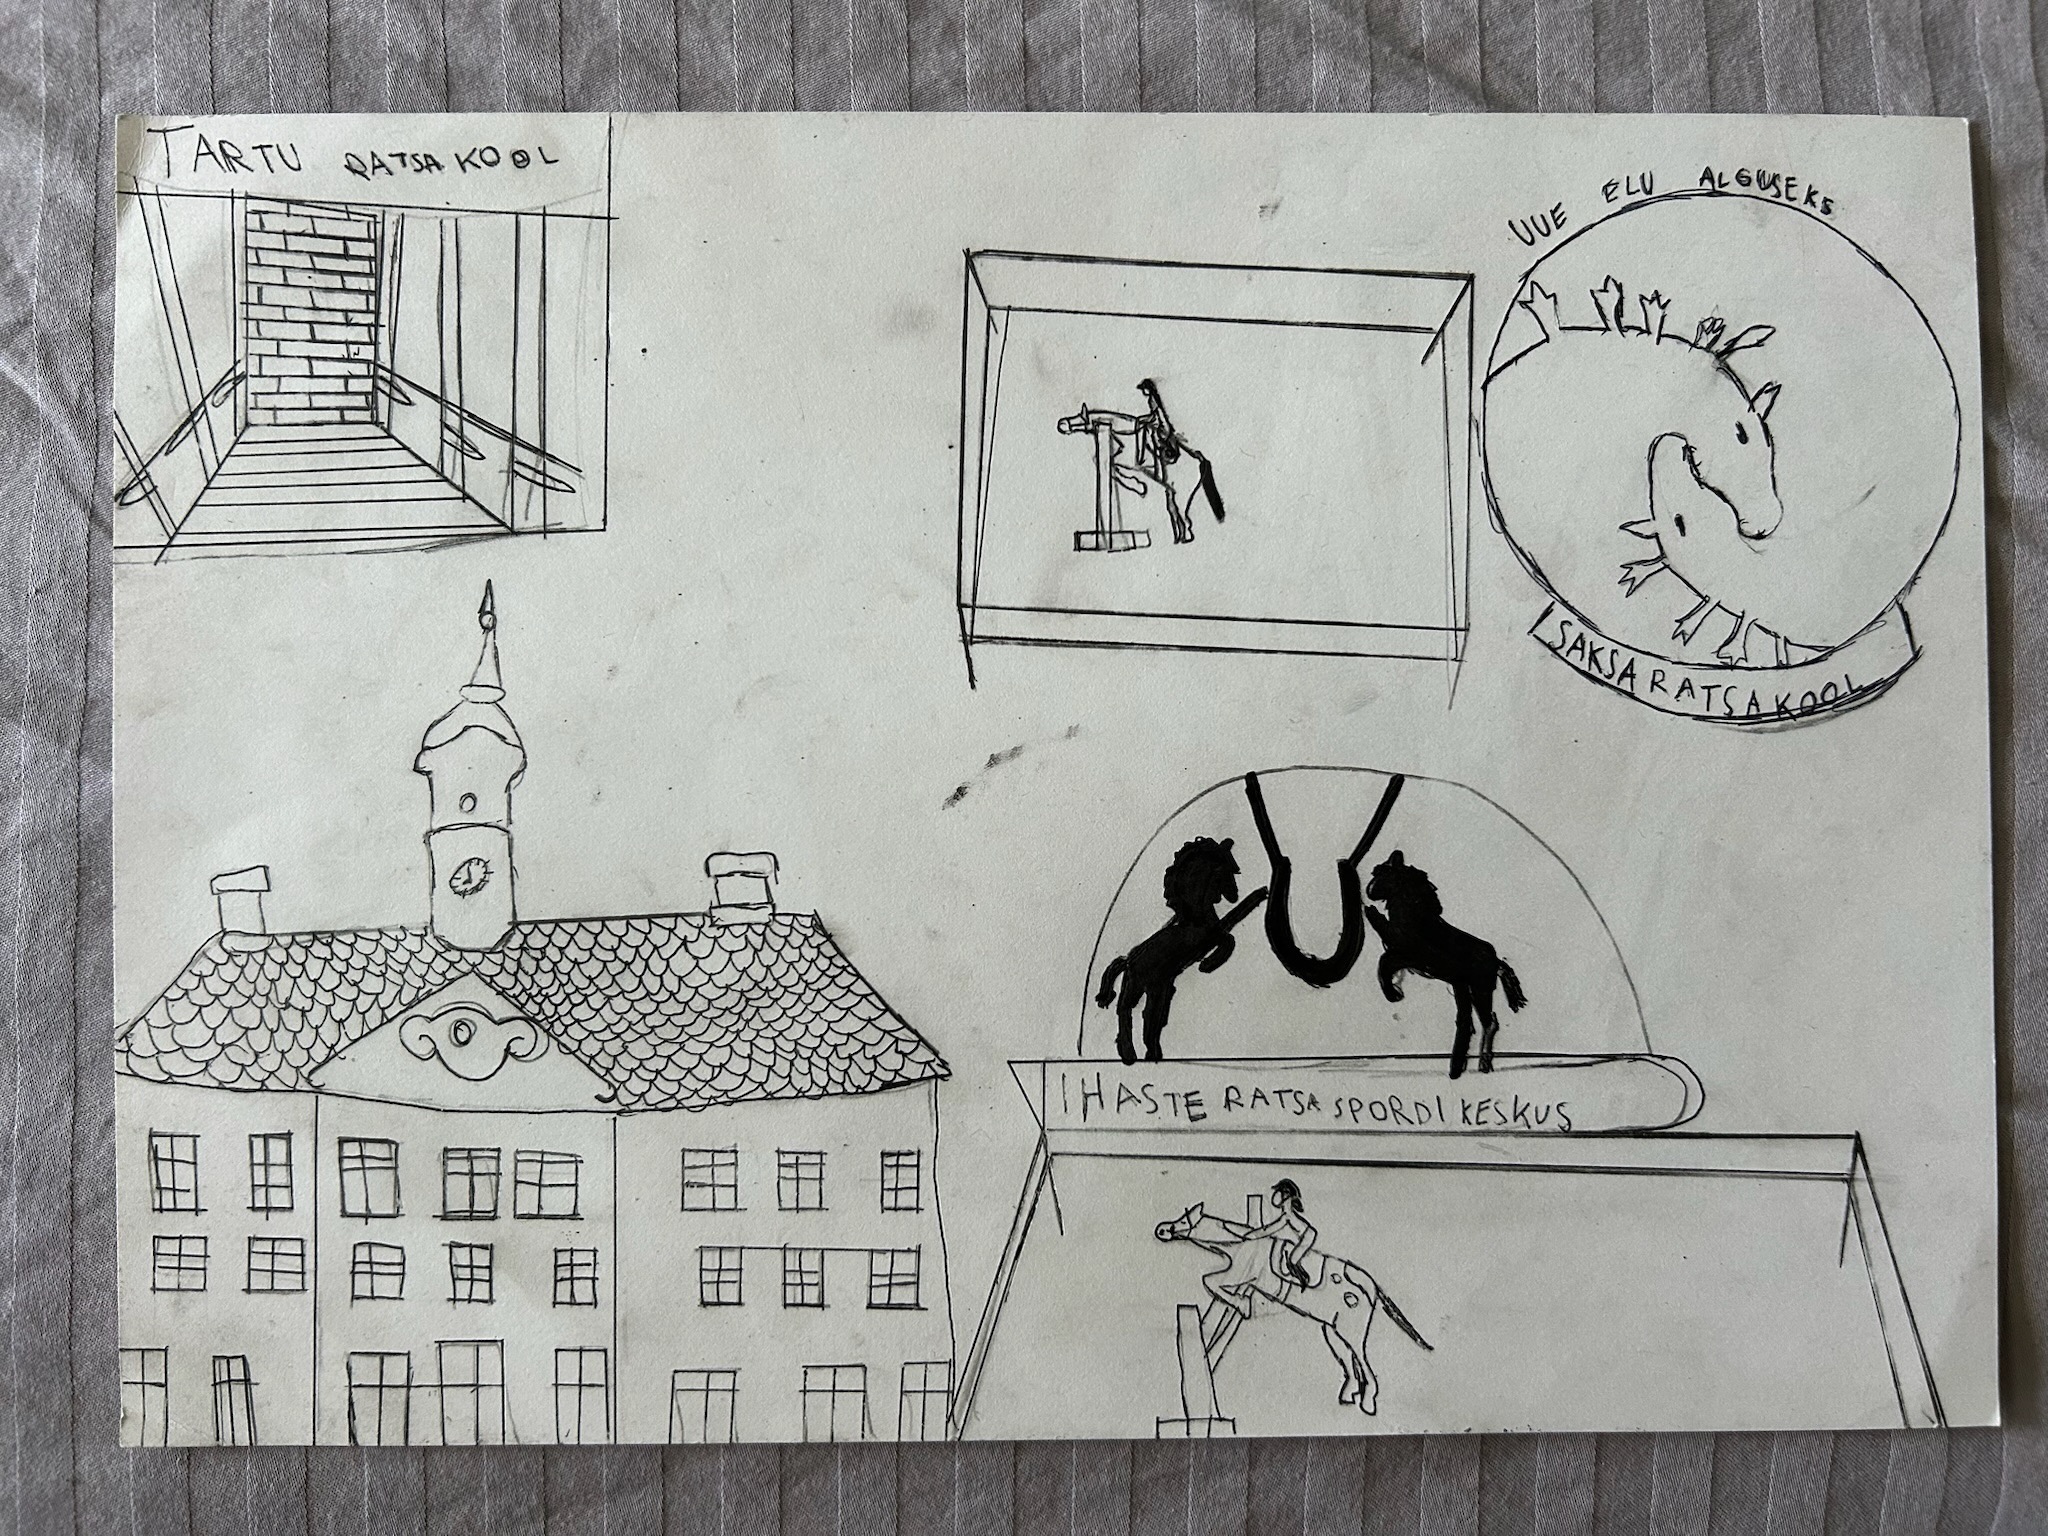 TARTU RATSAKOOL
UUE ELU ALGUSEKS
SAKSA RATSAKOOL
IHASTE RATSASPORDIKESKUS